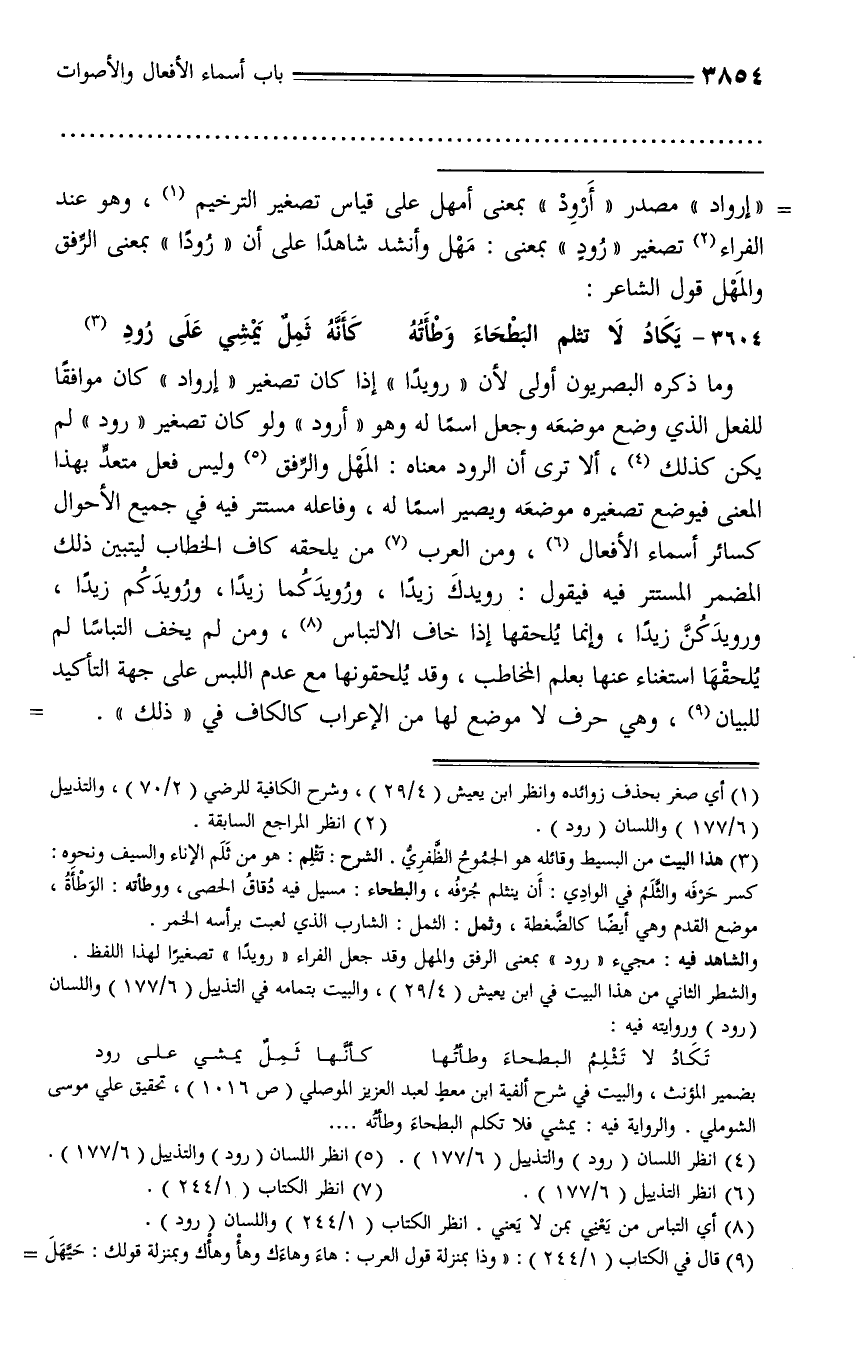 ٣٨٥٤ باب أسماء الأفعال والأصوات
= « إرواد » مصدر « أَرْوِدْ » بمعنى أمهل على قياس تصغير الترخيم (١) ، وهو عند
الفراء (٢) تصغير « رُودٍ » بمعنى : مَهْل وأنشد شاهدًا على أن « رُودًا » بمعنى الرِّفق
والمَهْل قول الشاعر :
٣٦٠٤ - يَكَادُ لَا تثلم البَطْحَاءَ وَطْأَتُهُ كَأَنَّهُ ثَمِلٌ يَمْشِي عَلَى رُودِ (٣)
وما ذكره البصريون أولى لأن « رويدًا » إذا كان تصغير « إرواد » كان موافقًا
للفعل الذي وضع موضعَه وجعل اسمًا له وهو « أرود » ولو كان تصغير « رود » لم
يكن كذلك (٤) ، ألا ترى أن الرود معناه : المَهْل والرِّفق (٥) وليس فعل متعدٍّ بهذا
المعنى فيوضع تصغيره موضعَه ويصير اسمًا له ، وفاعله مستتر فيه في جميع الأحوال
كسائر أسماء الأفعال (٦) ، ومن العرب (٧) من يلحقه كاف الخطاب ليتبين ذلك
المضمر المستتر فيه فيقول : رويدكَ زيدًا ، ورُويدَكُما زيدًا ، ورُويدَكُم زيدًا ،
ورويدَكُنَّ زيدًا ، وإنما يُلحقها إذا خاف الالتباس (٨) ، ومن لم يخف التباسًا لم
يُلحقْهَا استغناء عنها بعلم المخاطب ، وقد يُلحقونها مع عدم اللبس على جهة التأكيد
للبيان (٩) ، وهي حرف لا موضع لها من الإعراب كالكاف في « ذلك » . =
(١) أي صغر بحذف زوائده وانظر ابن يعيش ( ٢٩/٤ ) ، وشرح الكافية للرضي ( ٧٠/٢ ) ، والتذييل
( ١٧٧/٦ ) واللسان ( رود ) . (٢) انظر المراجع السابقة .
(٣) هذا البيت من البسيط وقائله هو الجَمُوحُ الظَّفريُّ . الشرح : تَثْلِم : هو من ثَلَم الإناء والسيف ونحوه :
كسر حَرْفَه والثَّلَمُ في الوادِي : أن ينثلم جُرْفُه ، والبطحاء : مسيل فيه دُقاقُ الحصى ، ووطأته : الوَطْأَةُ ،
موضع القدم وهي أيضًا كالضَّغطة ، وثمل : الثمل : الشارب الذي لعبت برأسه الخمر .
والشاهد فيه : مجيء « رود » بمعنى الرفق والمهل وقد جعل الفراء « رويدًا » تصغيرًا لهذا اللفظ .
والشطر الثاني من هذا البيت في ابن يعيش ( ٢٩/٤ ) ، والبيت بتمامه في التذييل ( ١٧٧/٦ ) واللسان
( رود ) وروايته فيه :
تَكَادُ لا تَثْلِمُ البطحاءَ وطأتُها كأنَّها ثَمِلٌ يمشي على رود
بضمير المؤنث ، والبيت في شرح ألفية ابن معطٍ لعبد العزيز الموصلي ( ص ١٠١٦ ) ، تحقيق علي موسى
الشوملي . والرواية فيه : يمشي فلا تكلم البطحاءَ وطأتُه ....
(٤) انظر اللسان ( رود ) والتذييل ( ١٧٧/٦ ) . (٥) انظر اللسان ( رود ) والتذييل ( ١٧٧/٦ ) .
(٦) انظر التذييل ( ١٧٧/٦ ) . (٧) انظر الكتاب ( ٢٤٤/١ ) .
(٨) أي التباس من يَعْنِي بمن لا يَعني . انظر الكتاب ( ٢٤٤/١ ) واللسان ( رود ) .
(٩) قال في الكتاب ( ٢٤٤/١ ) : « وذا بمنزلة قول العرب : هاءَ وهاءَك وهأْ وهأْك وبمنزلة قولك : حَيَّهَلَ =